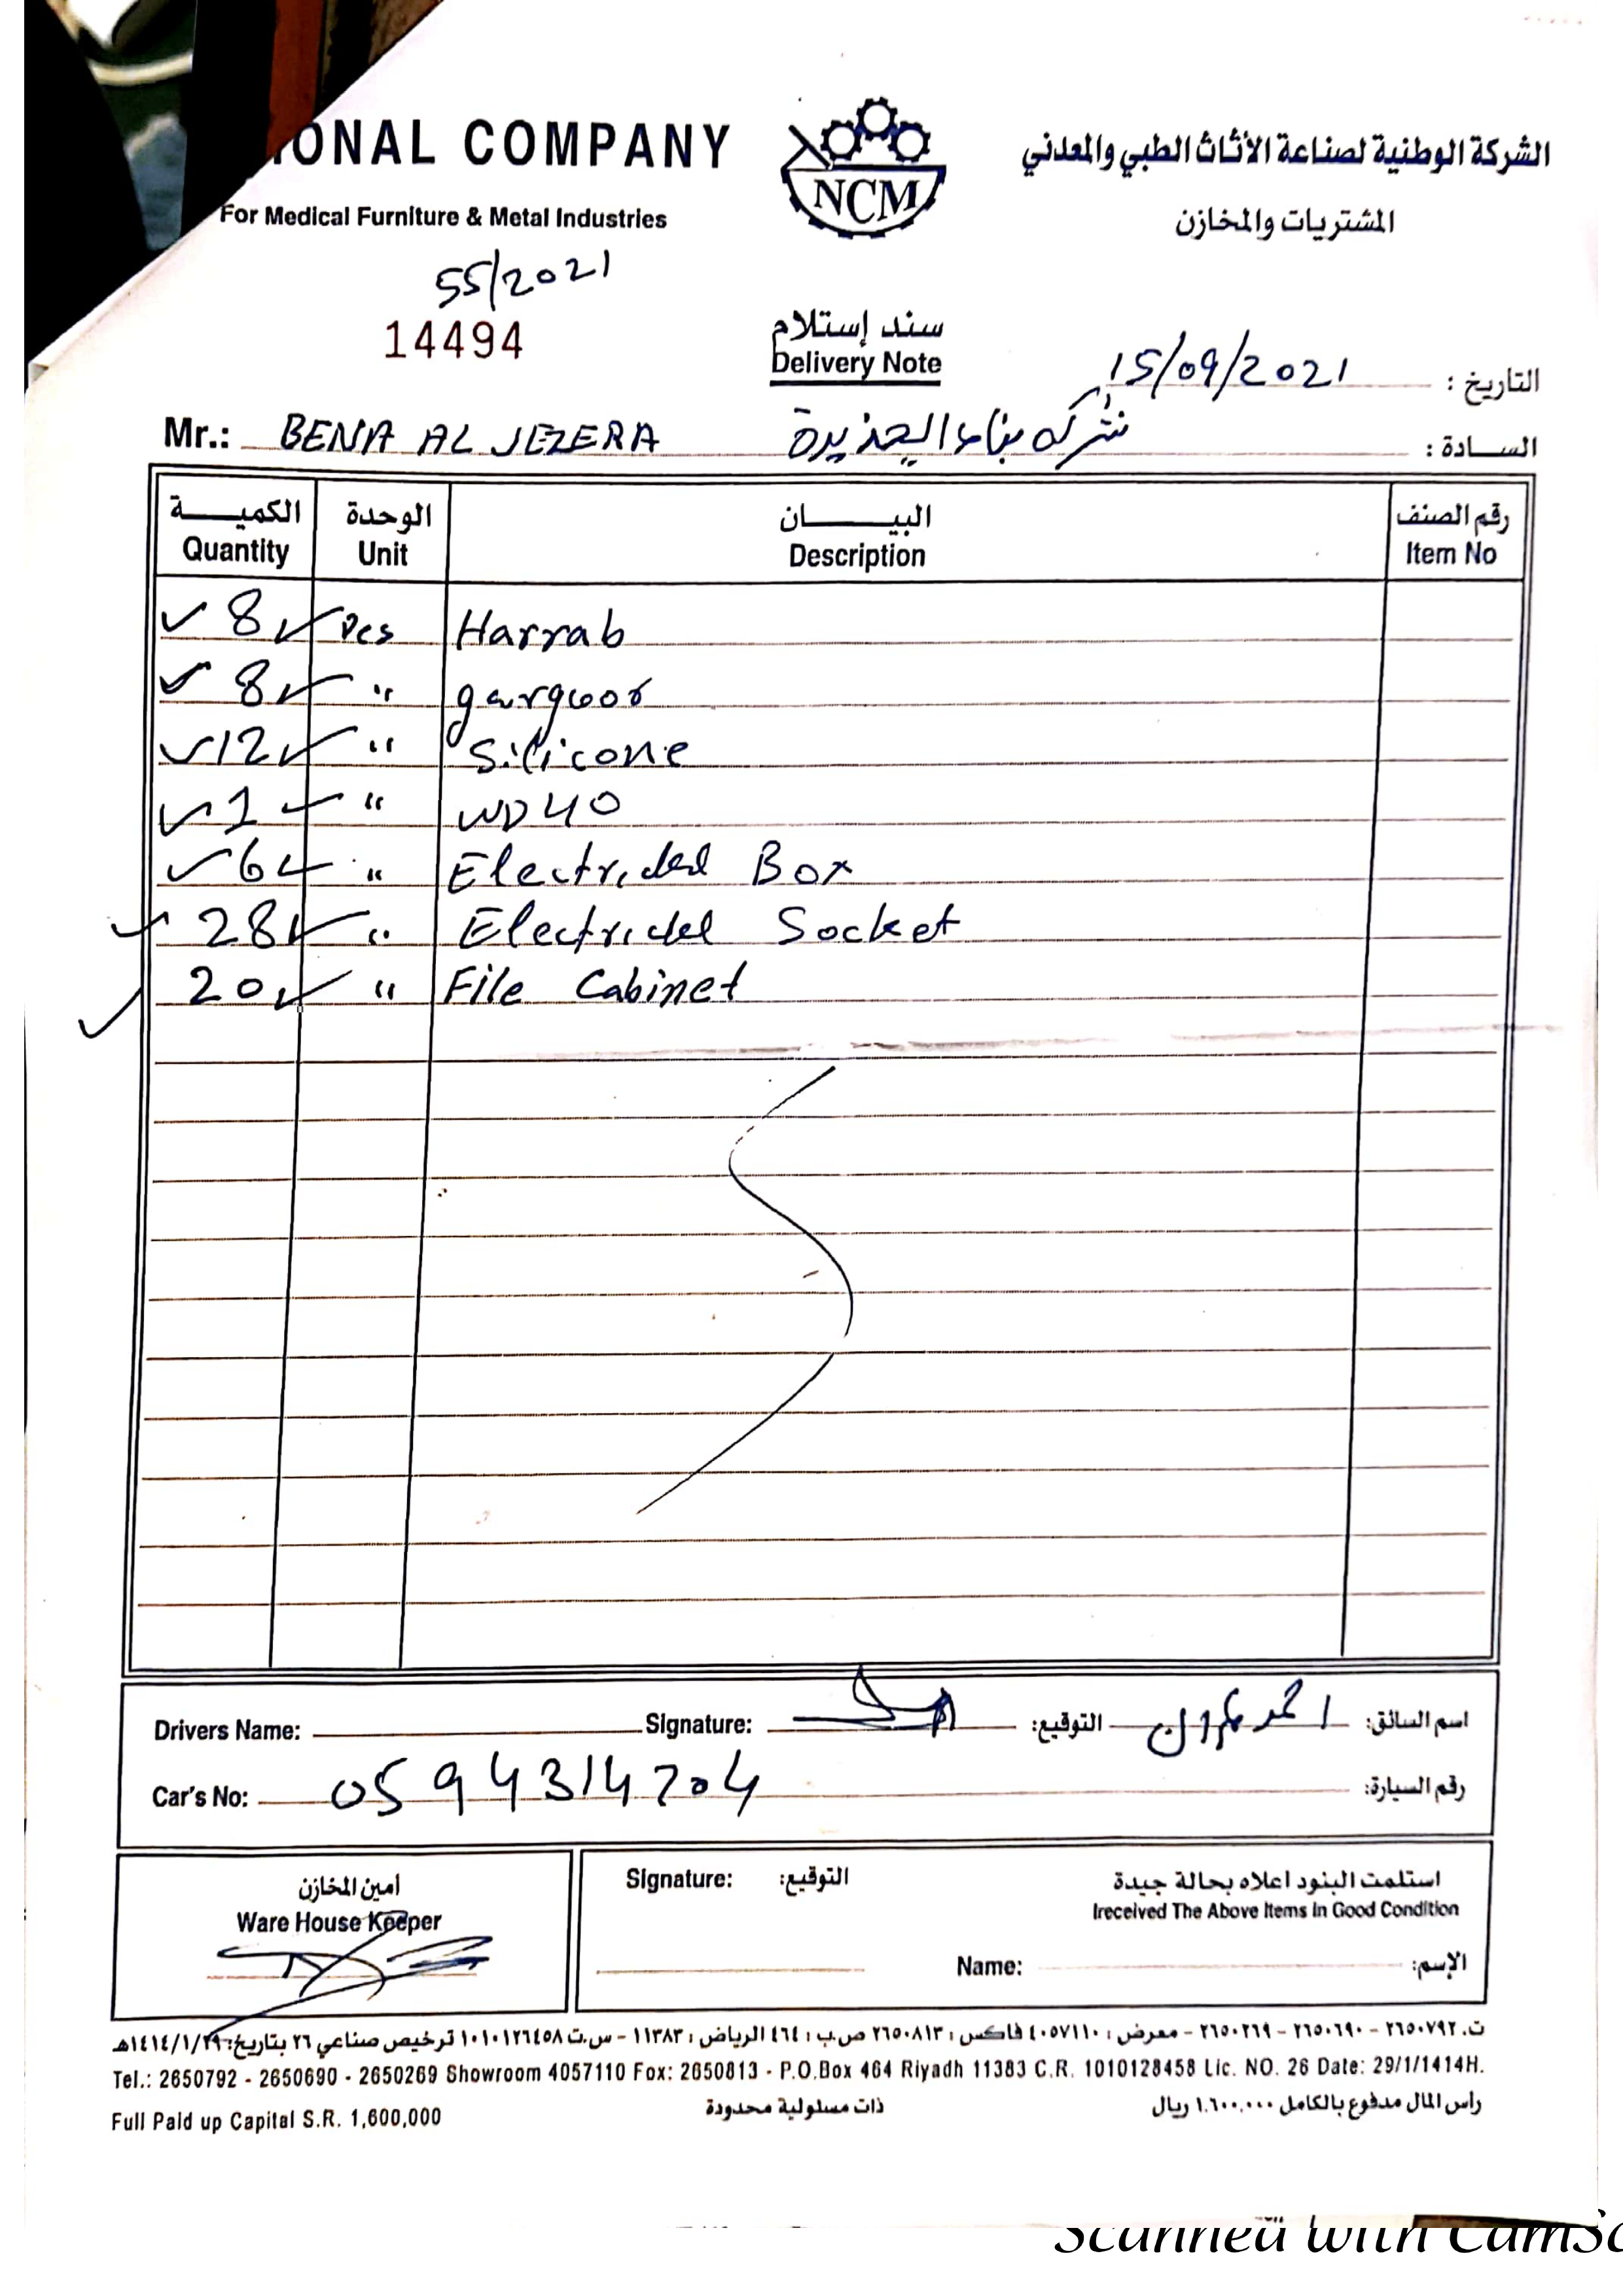 ONAL COMPANY
For Medical Furniture & Metal Industries
NCM
الشركة الوطنية لصناعة الأثاث الطبي والمعدني
المشتريات والمخازن
55/2021
14494
سند إستلام
Delivery Note
التاريخ : 15/09/2021
Mr.: BENA AL JEZERA
السادة : شركه بناء الجذيرة
الكمية الوحدة البيان رقم الصنف
Quantity Unit Description Item No
8 Pcs Harrab
8 " gargoor
12 " Silicone
1 " WD40
6 " Electrical Box
28 " Electrical Socket
20 " File Cabinet
Drivers Name: Signature: التوقيع: اسم السائق: احمد
Car's No: 0594314704 رقم السيارة:
أمين المخازن
Ware House Keeper
Signature: التوقيع:
استلمت البنود اعلاه بحالة جيدة
Ireceived The Above Items In Good Condition
Name: الإسم:
ت. ٢٦٥٠٧٩٢ - ٢٦٥٠٦٩٠ - ٢٦٥٠٢٦٩ - معرض : ٤٠٥٧١١٠ فاكس : ٢٦٥٠٨١٣ ص.ب : ٤٦٤ الرياض : ١١٣٨٣ - س.ت ١٠١٠١٢٦٤٥٨ ترخيص صناعي ٢٦ بتاريخ: ١٤١٤/١/٢٩هـ
Tel.: 2650792 - 2650690 - 2650269 Showroom 4057110 Fox: 2650813 - P.O.Box 464 Riyadh 11383 C.R. 1010128458 Lic. NO. 26 Date: 29/1/1414H.
Full Paid up Capital S.R. 1,600,000 ذات مسئولية محدودة راس المال مدفوع بالكامل ١.٦٠٠,٠٠٠ ريال
Scanned with CamSc